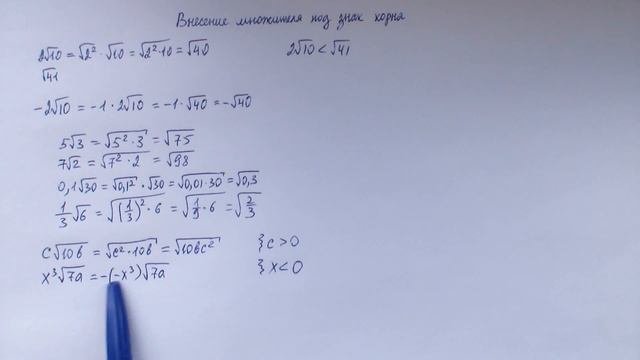 Внесение множителя под знак корня
2√10 = √2² · √10 = √(2² · 10) = √40 2√10 < √41
√41
-2√10 = -1 · 2√10 = -1 · √40 = -√40
5√3 = √(5² · 3) = √75
7√2 = √(7² · 2) = √98
0,1√30 = √0,1² · √30 = √(0,01 · 30) = √0,3
1/3 √6 = √((1/3)² · 6) = √(1/9 · 6) = √(2/3)
c√10b = √(c² · 10b) = √(10bc²) } c > 0
x³√7a = -(-x³)√7a } x < 0